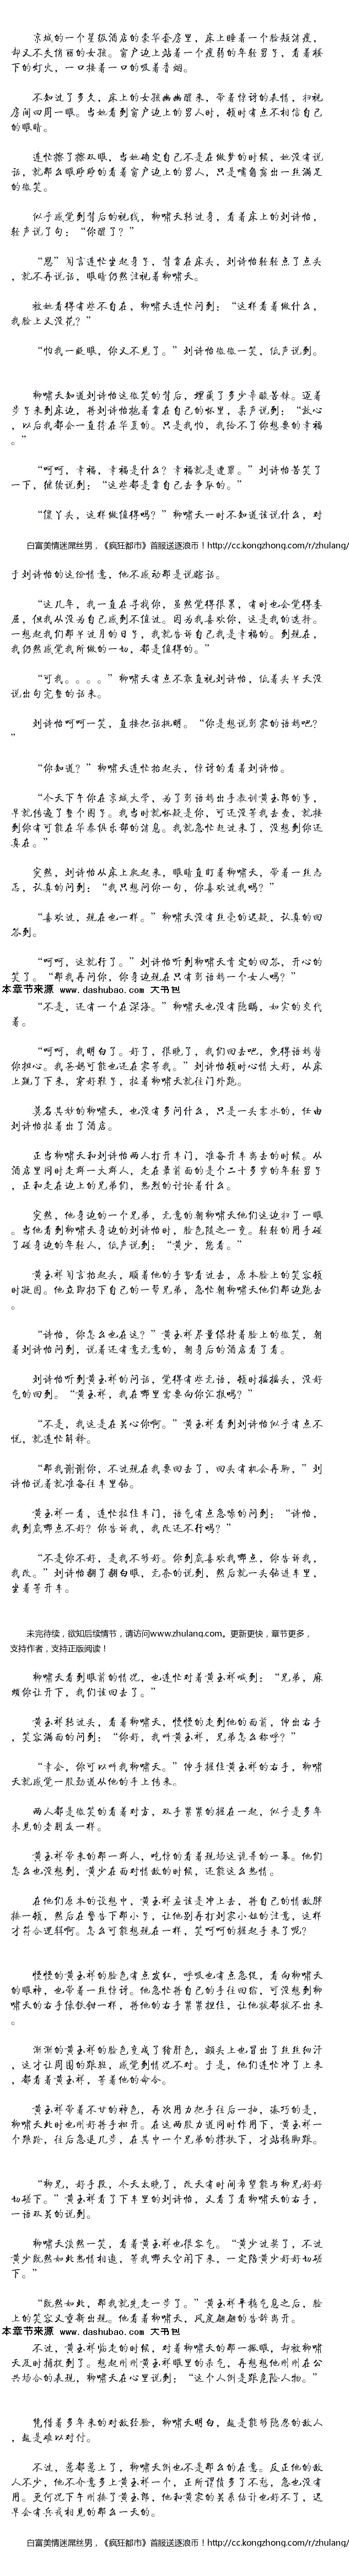 京城的一个星级酒店的豪华套房里，床上睡着一个脸颊消瘦，
却又不失俏丽的女孩。窗户边上站着一个瘦弱的年轻男子，看着楼
下的灯火，一口接着一口的吸着香烟。
不知过了多久，床上的女孩幽幽醒来，带着惊讶的表情，扫视
房间四周一眼。当她看到窗户边上的男人时，顿时有点不相信自己
的眼睛。
连忙擦了擦双眼，当她确定自己不是在做梦的时候，她没有说
话，就那么眼睁睁的看着窗户边上的男人，只是嘴角露出一丝满足
的微笑。
似乎感觉到背后的视线，柳啸天转过身，看着床上的刘诗怡，
轻声说了句：“你醒了？”
“恩”闻言连忙坐起身子，背靠在床头，刘诗怡轻轻点了点头，
就不再说话，眼睛仍然注视着柳啸天。
被她看得有些不自在，柳啸天连忙问到：“这样看着做什么，
我脸上又没花？”
“怕我一眨眼，你又不见了。”刘诗怡微微一笑，低声说到。
柳啸天知道刘诗怡这微笑的背后，埋藏了多少辛酸苦辣。迈着
步子来到床边，将刘诗怡抱着靠在自己的怀里，柔声说到：“放心
，以后我都会一直待在华夏的。只是我怕，我给不了你想要的幸福
。”
“呵呵，幸福，幸福是什么？幸福就是遭罪。”刘诗怡苦笑了
一下，继续说到：“这些都是靠自己去争取的。”
“傻丫头，这样做值得吗？”柳啸天一时不知道该说什么，对
白富美情迷屌丝男，《疯狂都市》首服送逐浪币！http://cc.kongzhong.com/r/zhulang/
于刘诗怡的这份情意，他不感动那是说瞎话。
“这几年，我一直在寻找你，虽然觉得很累，有时也会觉得委
屈，但我从没为自己感到不值过。因为我喜欢你，这是我的选择。
一想起我们那半过月的日子，我就告诉自己我是幸福的。到现在，
我仍然感觉我所做的一切，都是值得的。”
“可我。。。。”柳啸天有点不敢直视刘诗怡，低着头半天没
说出句完整的话来。
刘诗怡呵呵一笑，直接把话挑明。“你是想说彭家的语嫣吧？
”
“你知道？”柳啸天连忙抬起头，惊讶的看着刘诗怡。
“今天下午你在京城大学，为了彭语嫣出手教训黄玉郎的事，
早就传遍了整个圈子。我当时就怀疑是你，可还没等我去查，就接
到你有可能在华泰俱乐部的消息。我就急忙赶过来了，没想到你还
真在。”
突然，刘诗怡从床上趴起来，眼睛直盯着柳啸天，带着一丝忐
忑，认真的问到：“我只想问你一句，你喜欢过我吗？”
“喜欢过，现在也一样。”柳啸天没有丝毫的迟疑，认真的回
答到。
“呵呵，这就行了。”刘诗怡听到柳啸天肯定的回答，开心的
笑了。“那我再问你，你身边现在只有彭语嫣一个女人吗？”
本章节来源 www.dashubao.com 大书包
“不是，还有一个在深海。”柳啸天也没有隐瞒，如实的交代
着。
“呵呵，我明白了。好了，很晚了，我们回去吧，免得语嫣替
你担心。我爸妈可能也还在家等我。”刘诗怡顿时心情大好，从床
上跳了下来，穿好鞋子，拉着柳啸天就往门外跑。
莫名其妙的柳啸天，也没有多问什么，只是一头雾水的，任由
刘诗怡拉着出了酒店。
正当柳啸天和刘诗怡两人打开车门，准备开车离去的时候。从
酒店里同时走群一大群人，走在最前面的是个二十多岁的年轻男子
，正和走在边上的兄弟们，热烈的讨论着什么。
突然，他身边的一个兄弟，无意的朝柳啸天他们这边扫了一眼
。当他看到柳啸天身边的刘诗怡时，脸色随之一变。轻轻的用手碰
了碰身边的年轻人，低声说到：“黄少，您看。”
黄玉祥闻言抬起头，顺着他的手势看过去，原本脸上的笑容顿
时凝固。他立即扔下自己的一帮兄弟，急忙朝柳啸天他们那边跑去
。
“诗怡，你怎么也在这？”黄玉祥尽量保持着脸上的微笑，朝
着刘诗怡问到，说着还有意无意的，朝身后的酒店看了看。
刘诗怡听到黄玉祥的问话，觉得有些无语，顿时摇摇头，没好
气的回到。“黄玉祥，我在哪里需要向你汇报吗？”
“不是，我这是在关心你啊。”黄玉祥看到刘诗怡似乎有点不
悦，就连忙解释。
“那我谢谢你，不过现在我要回去了，回头有机会再聊，”刘
诗怡说着就准备往车里钻。
黄玉祥一看，连忙拉住车门，语气有点急噪的问到：“诗怡，
我到底哪点不好？你告诉我，我改还不行吗？”
“不是你不好，是我不够好。你到底喜欢我哪点，你告诉我，
我改。”刘诗怡翻了翻白眼，无奈的说到，然后就一头钻进车里，
坐着等开车。
未完待续，欲知后续情节，请访问www.zhulang.com。更新更快，章节更多，
支持作者，支持正版阅读！
柳啸天看到眼前的情况，也连忙对着黄玉祥喊到：“兄弟，麻
烦你让开下，我们该回去了。”
黄玉祥转过头，看着柳啸天，慢慢的走到他的面前，伸出右手
，笑容满面的问到：“你好，我叫黄玉祥，兄弟怎么称呼？”
“幸会，你可以叫我柳啸天。”伸手握住黄玉祥的右手，柳啸
天就感觉一股劲道从他的手上传来。
两人都是微笑的看着对方，双手紧紧的握在一起，似乎是多年
未见的老朋友一样。
黄玉祥带来的那一群人，吃惊的看着现场这诡异的一幕。他们
怎么也没想到，黄少在面对情敌的时候，还能这么热情。
在他们原本的设想中，黄玉祥应该是冲上去，将自己的情敌胖
揍一顿，然后在警告下那小子，让他别再打刘家小姐的注意，这样
才符合逻辑啊。怎么可能想现在一样，笑呵呵的握起手来了呢？
慢慢的黄玉祥的脸色有点发红，呼吸也有点急促，看向柳啸天
的眼神，也带着一丝惊讶。他急忙将自己的手往回抽，可没想到柳
啸天的右手像铁钳一样，将他的右手紧紧担住，让他拔都拔不出来
。
渐渐的黄玉祥的脸色变成了猪肝色，额头上也冒出了丝丝细汗
，这才让周围的跟班，感觉到情况不对。于是，他们连忙冲了上来
，都看着黄玉祥，等着他的命令。
黄玉祥带着不甘的神色，再次用力把手往后一抽，凑巧的是，
柳啸天此时也刚好将手松开。在这两股力道同时作用下，黄玉祥一
个踉跄，往后急退几步，在其中一个兄弟的搀扶下，才站稳脚跟。
“柳兄，好手段，今天太晚了，改天有时间希望能与柳兄好好
切磋下。”黄玉祥看了下车里的刘诗怡，又看了看柳啸天的右手，
一语双关的说到。
柳啸天淡然一笑，看着黄玉祥也很客气。“黄少过奖了，不过
黄少既然如此热情相邀，等我哪天空闲下来，一定陪黄少好好切磋
下。”
“既然如此，那我就先走一步了。”黄玉祥平稳气息之后，脸
上的笑容又重新出现。他看着柳啸天，风度翩翩的告辞离开。
本章节来源 www.dashubao.com 大书包
不过，黄玉祥临走的时候，对着柳啸天的那一撇眼，却被柳啸
天及时捕捉到了。想起刚刚黄玉祥眼里的杀气，再想想他刚刚在公
共场合的表现，柳啸天在心里说到：“这个人倒是跟危险人物。”
凭借着多年来的对敌经验，柳啸天明白，越是能够隐忍的敌人
，越是难以对付。
不过，惹都惹上了，柳啸天倒也不是那么的在意。反正他的敌
人不少，他不介意多上黄玉祥一个，正所谓债多了不愁，急也没有
用。更何况下午刚揍了黄玉郎，他和黄家的关系估计也好不了，迟
早会有兵戎相见的那么一天的。
白富美情迷屌丝男，《疯狂都市》首服送逐浪币！http://cc.kongzhong.com/r/zhulang/